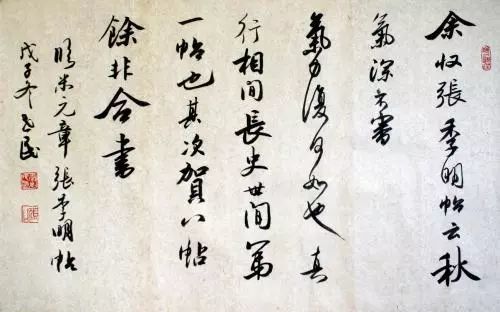 余收張季明帖云秋
氣深不審
氣力復何如也真
行相間長史世間第
一帖也其次賀八帖
餘非合書
臨米元章張季明帖
戊子冬